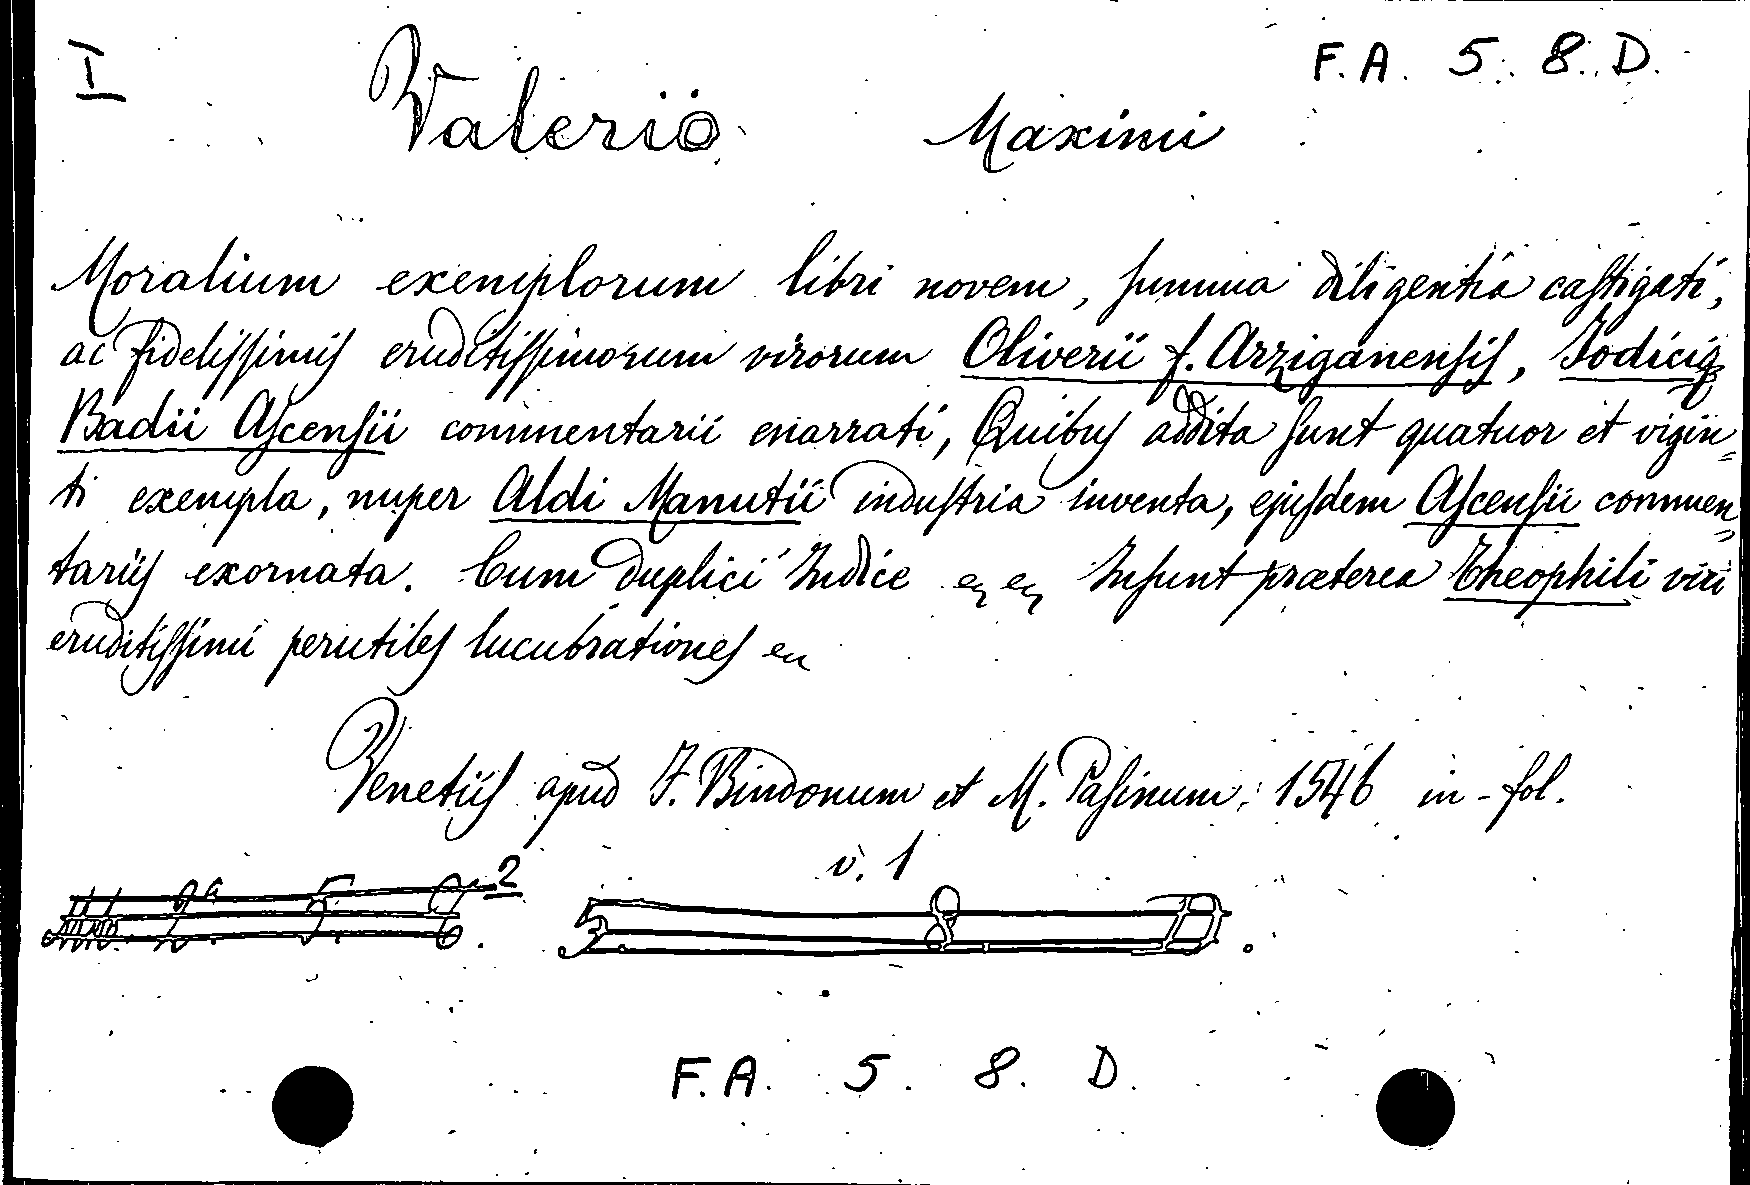 I F.A. 5. 8. D.
Valerio Maximi
Moralium exemplorum libri novem, summa diligentia castigati,
ac fidelissimis eruditissimorum virorum Oliverii f. Arziganensis, Jodiciq
Badii Ascensii commentarii enarrati, Quibus addita sunt quatuor et vigin=
ti exempla, nuper Aldi Manutii industria inventa, ejusdem Ascensii commen=
tariis exornata. Cum Duplici Indice Insunt præterea Theophili viri
eruditissimi perutiles lucubrationes
Venetiis apud F. Bindonum et M. Pasinum. 1546 in-fol.
v. 1
5. 8. D.
F.A. 5. 8. D.